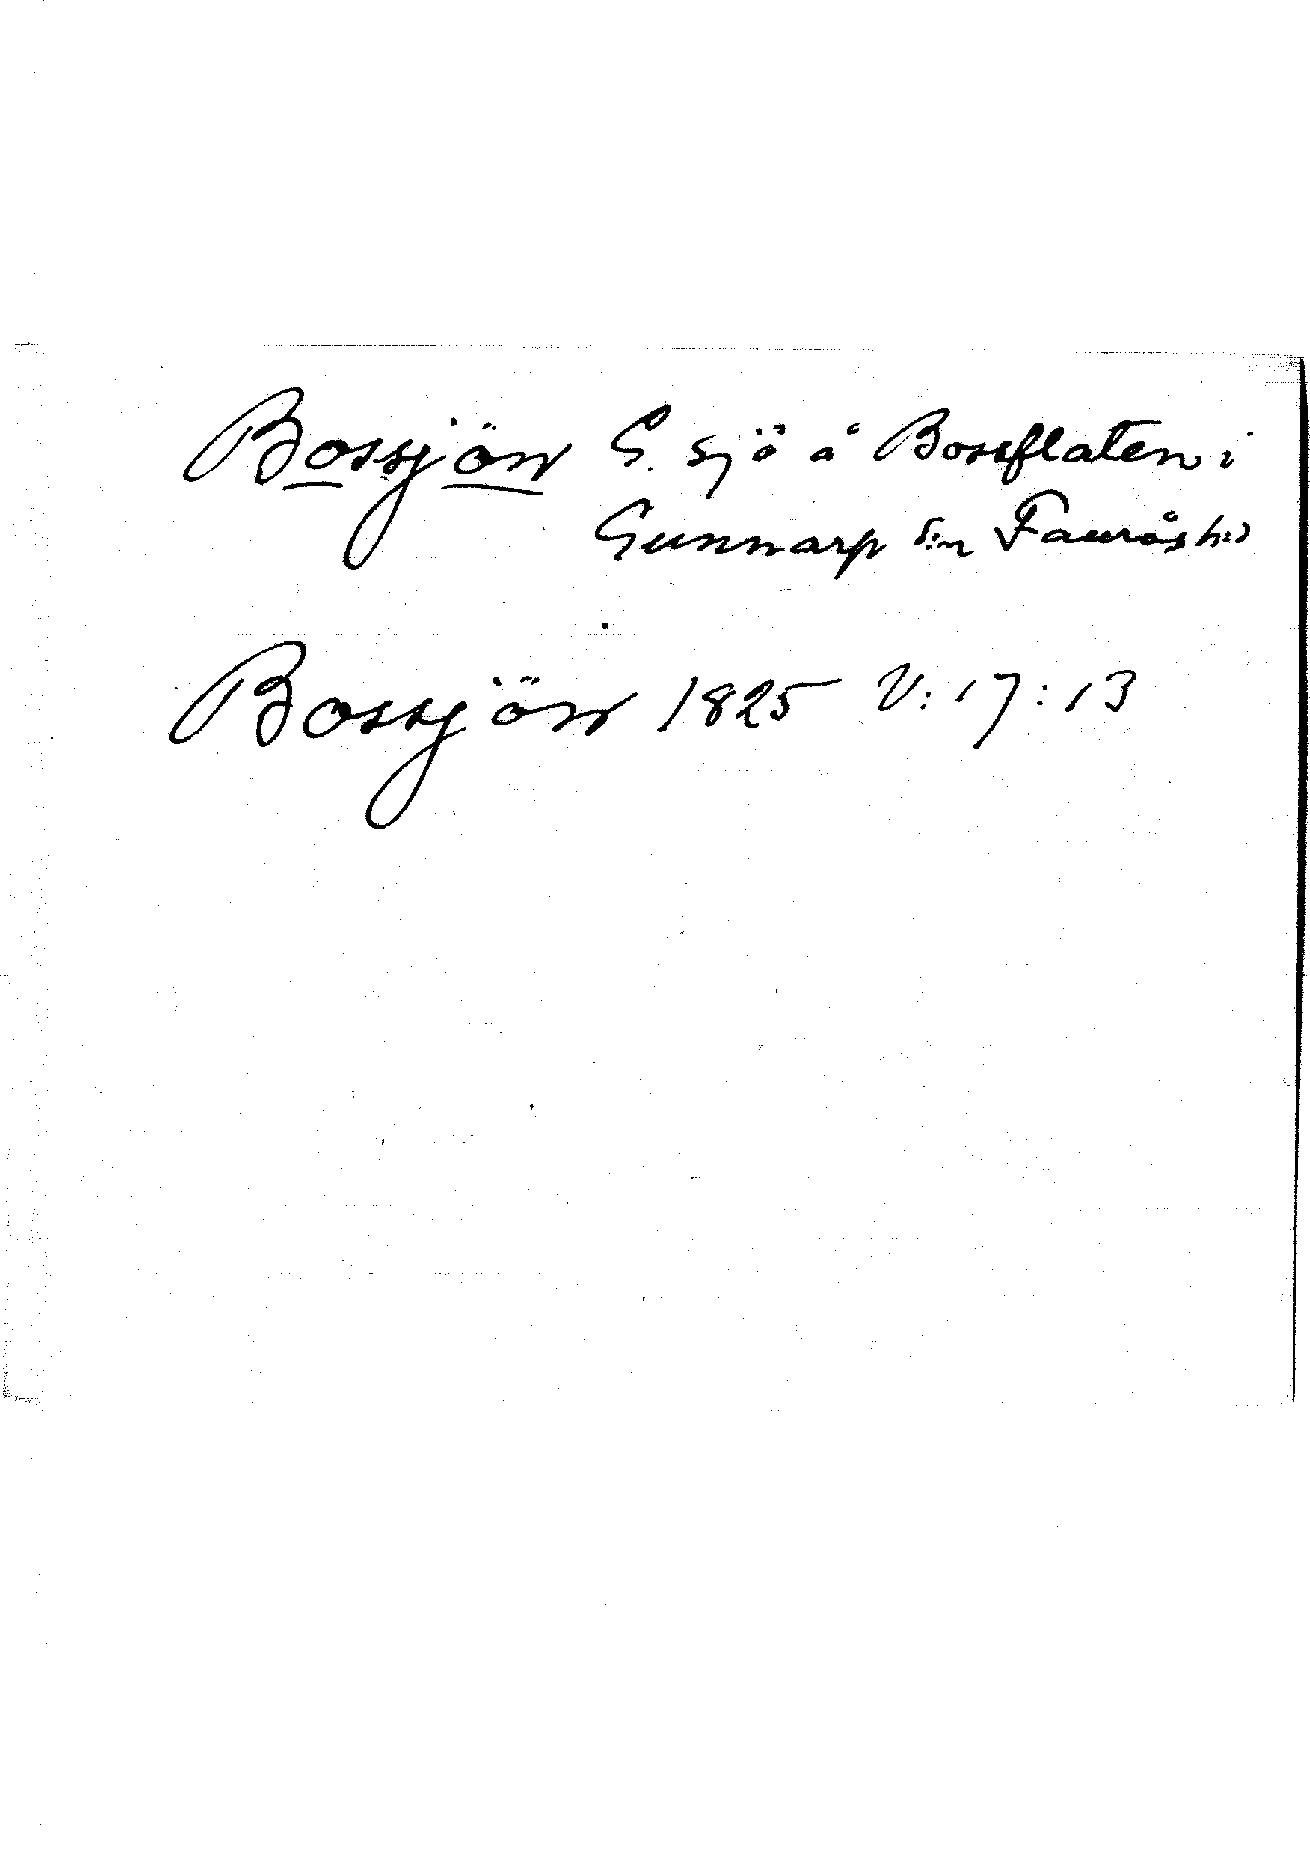 Bossjön G. sjö å Bossflaten i
Gunnarp s:n Fauråshd
Bossjön 1825 V: 17: 13